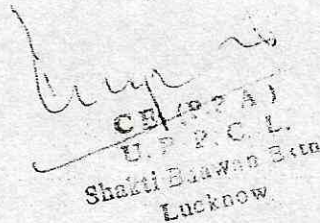 CE (P.P.A)
U.P.P.C.L.
Shakti Bhawan Extn
Lucknow